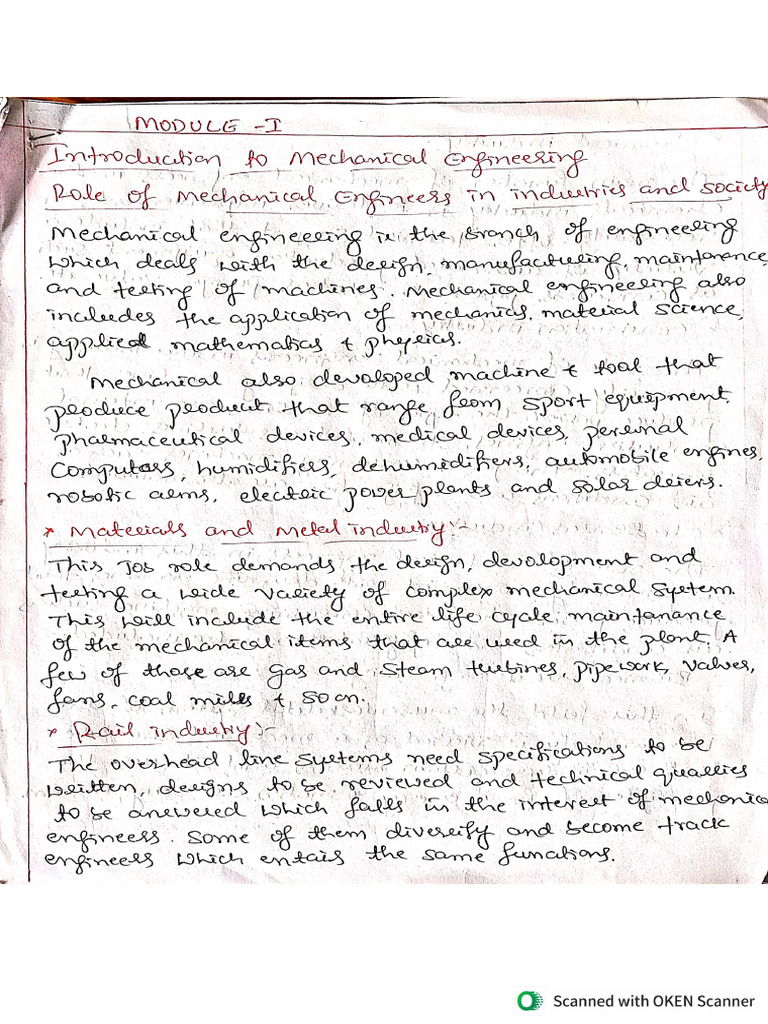 MODULE -I
Introduction to Mechanical Engineering
Role of Mechanical Engineers in industries and society
Mechanical engineering is the branch of engineering
which deals with the design, manufacturing, maintanance,
and testing of machines. Mechanical engineering also
includes the application of mechanics, material science,
applied mathematics & physics.
Mechanical also devoloped machine & tool that
produce product that range from sport equipment,
pharmaceutical devices, medical devices, personal
computers, humidifiers, dehumidifiers, automobile engines,
robotic arms, electric power plants and solar
* Materials and Metal industry :-
This Job role demands the design, devolopment and
testing a wide variety of complex mechanical system.
This will include the entire life cycle maintanance
of the mechanical items that are used in the plant. A
few of those are gas and steam turbines, pipework, valves,
fans, coal mills & so on.
* Rail industry :-
The overhead line systems need specifications to be
written, designs to be reviewed and technical
to be answered which falls in the interest of mechanic
engineers. Some of them diversify and become track
engineers which entails the same functions.
Scanned with OKEN Scanner